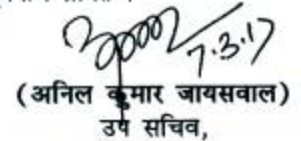 7.3.17
(अनिल कुमार जायसवाल)
उप सचिव,